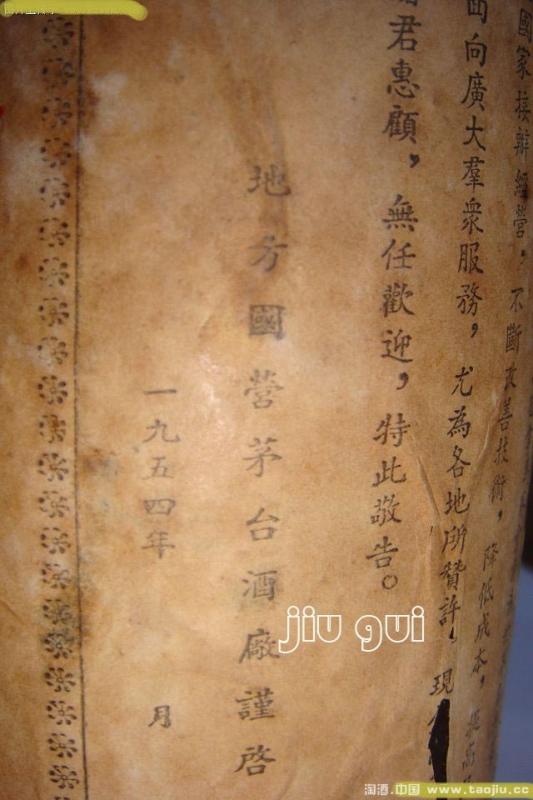 國家接辦經營，不斷改善技術，降低成本，提高
面向廣大羣眾服務，尤為各地所贊許，現
君惠顧，無任歡迎，特此敬告。
地方國營茅台酒廠謹啓
一九五四年 月
jiu gui
淘酒.中国 www.taojiu.cc